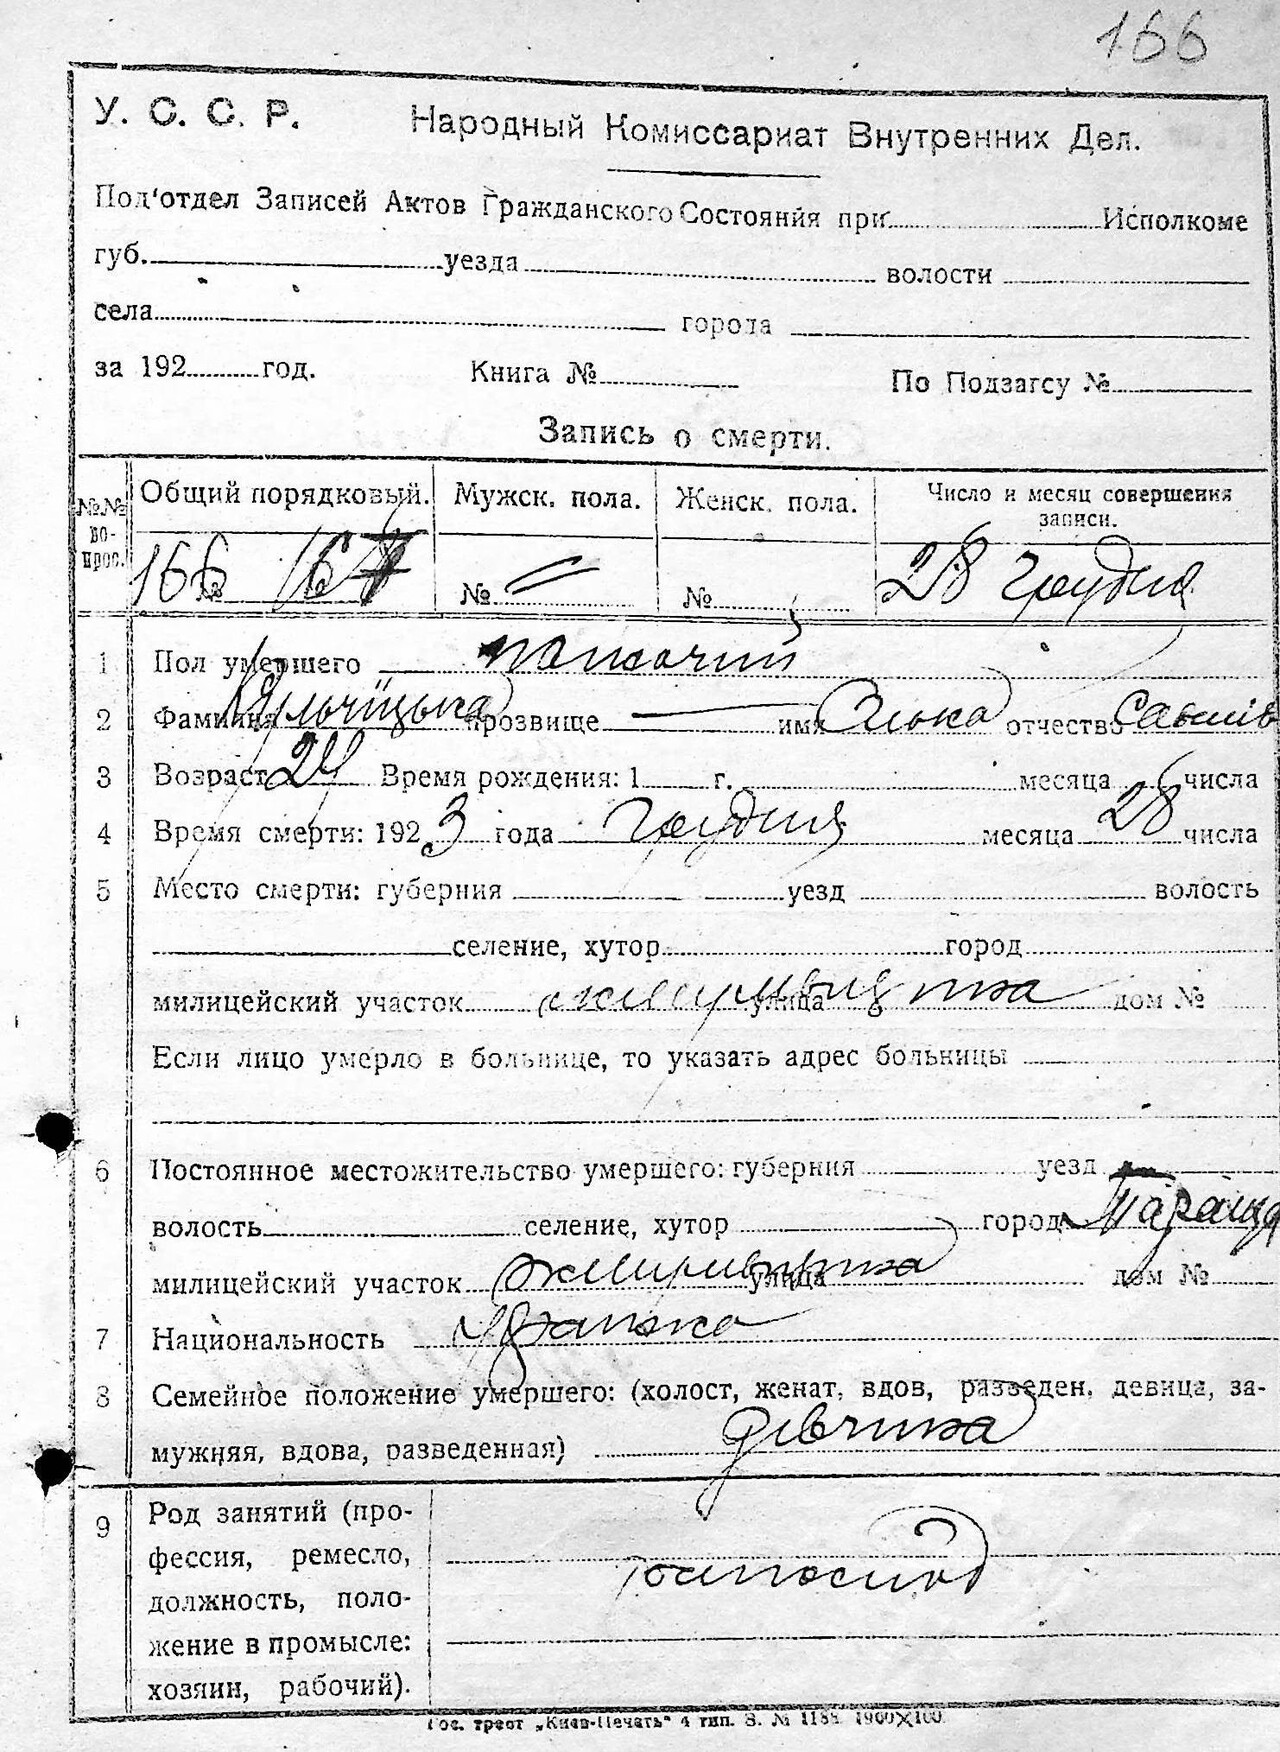 166
У. С. С. Р. Народный Комиссариат Внутренних Дел.
Под'отдел Записей Актов Гражданского Состояния при Исполкоме
губ. уезда волости
села города
за 192 год. Книга № По Подзагсу №
Запись о смерти.
№№ вопрос. Общий порядковый. Мужск. пола. Женск. пола. Число и месяц совершения записи.
166 № 167 № № 28 грудня
1 Пол умершего жіночий
2 Фамилия прозвище имя отчество
3 Возраст 24 Время рождения: 1 г. месяца числа
4 Время смерти: 1923 года грудня месяца 28 числа
5 Место смерти: губерния уезд волость
селение, хутор город
милицейский участок улица дом №
Если лицо умерло в больнице, то указать адрес больницы
6 Постоянное местожительство умершего: губерния уезд
волость селение, хутор город Тараща
милицейский участок улица дом №
7 Национальность
8 Семейное положение умершего: (холост, женат, вдов, разведен, девица, за-
мужняя, вдова, разведенная) дівчина
9 Род занятий (про-
фессия, ремесло,
должность, поло-
жение в промысле:
хозяин, рабочий).
Гос. трест „Киев-Печать“ 4 тип. З. №